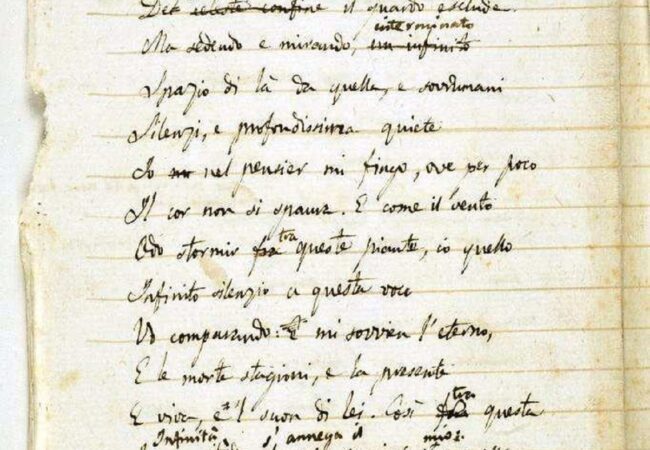 Del celeste confine il guardo esclude.
interminato
Ma sedendo e mirando, un infinito
Spazio di là da quella, e sovrumani
Silenzi, e profondissima quiete
Io nel pensier mi fingo, ove per poco
Il cor non si spaura. E come il vento
tra
Odo stormir fra queste piante, io quello
Infinito silenzio a questa voce
Vo comparando: E mi sovvien l'eterno,
E le morte stagioni, e la presente
tra
E viva, e 'l suon di lei. Così fra questa
Infinità s'annega il mio: